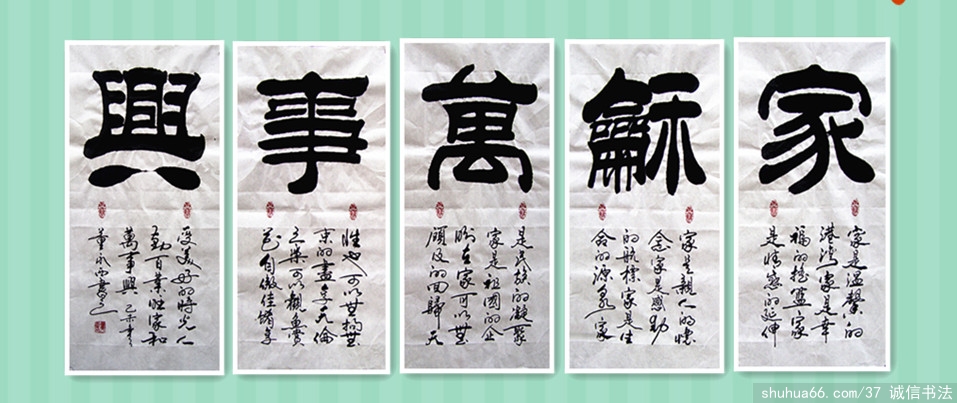 家
龢
萬
事
興
家是溫馨的
港灣家是幸
福的搖籃家
是情感的延伸
家是親人的懷
念家是感動
的航標家是生
命的源泉家
是民族的凝聚
家是祖國的企
盼在家可以無
顧及的回歸天
性也可以無拘無
束的盡享天倫
之樂可以觀魚賞
花自傲佳境享
受美好的時光人
勤百業旺家和
萬事興 乙未年
shuhua66.com/37 诚信书法